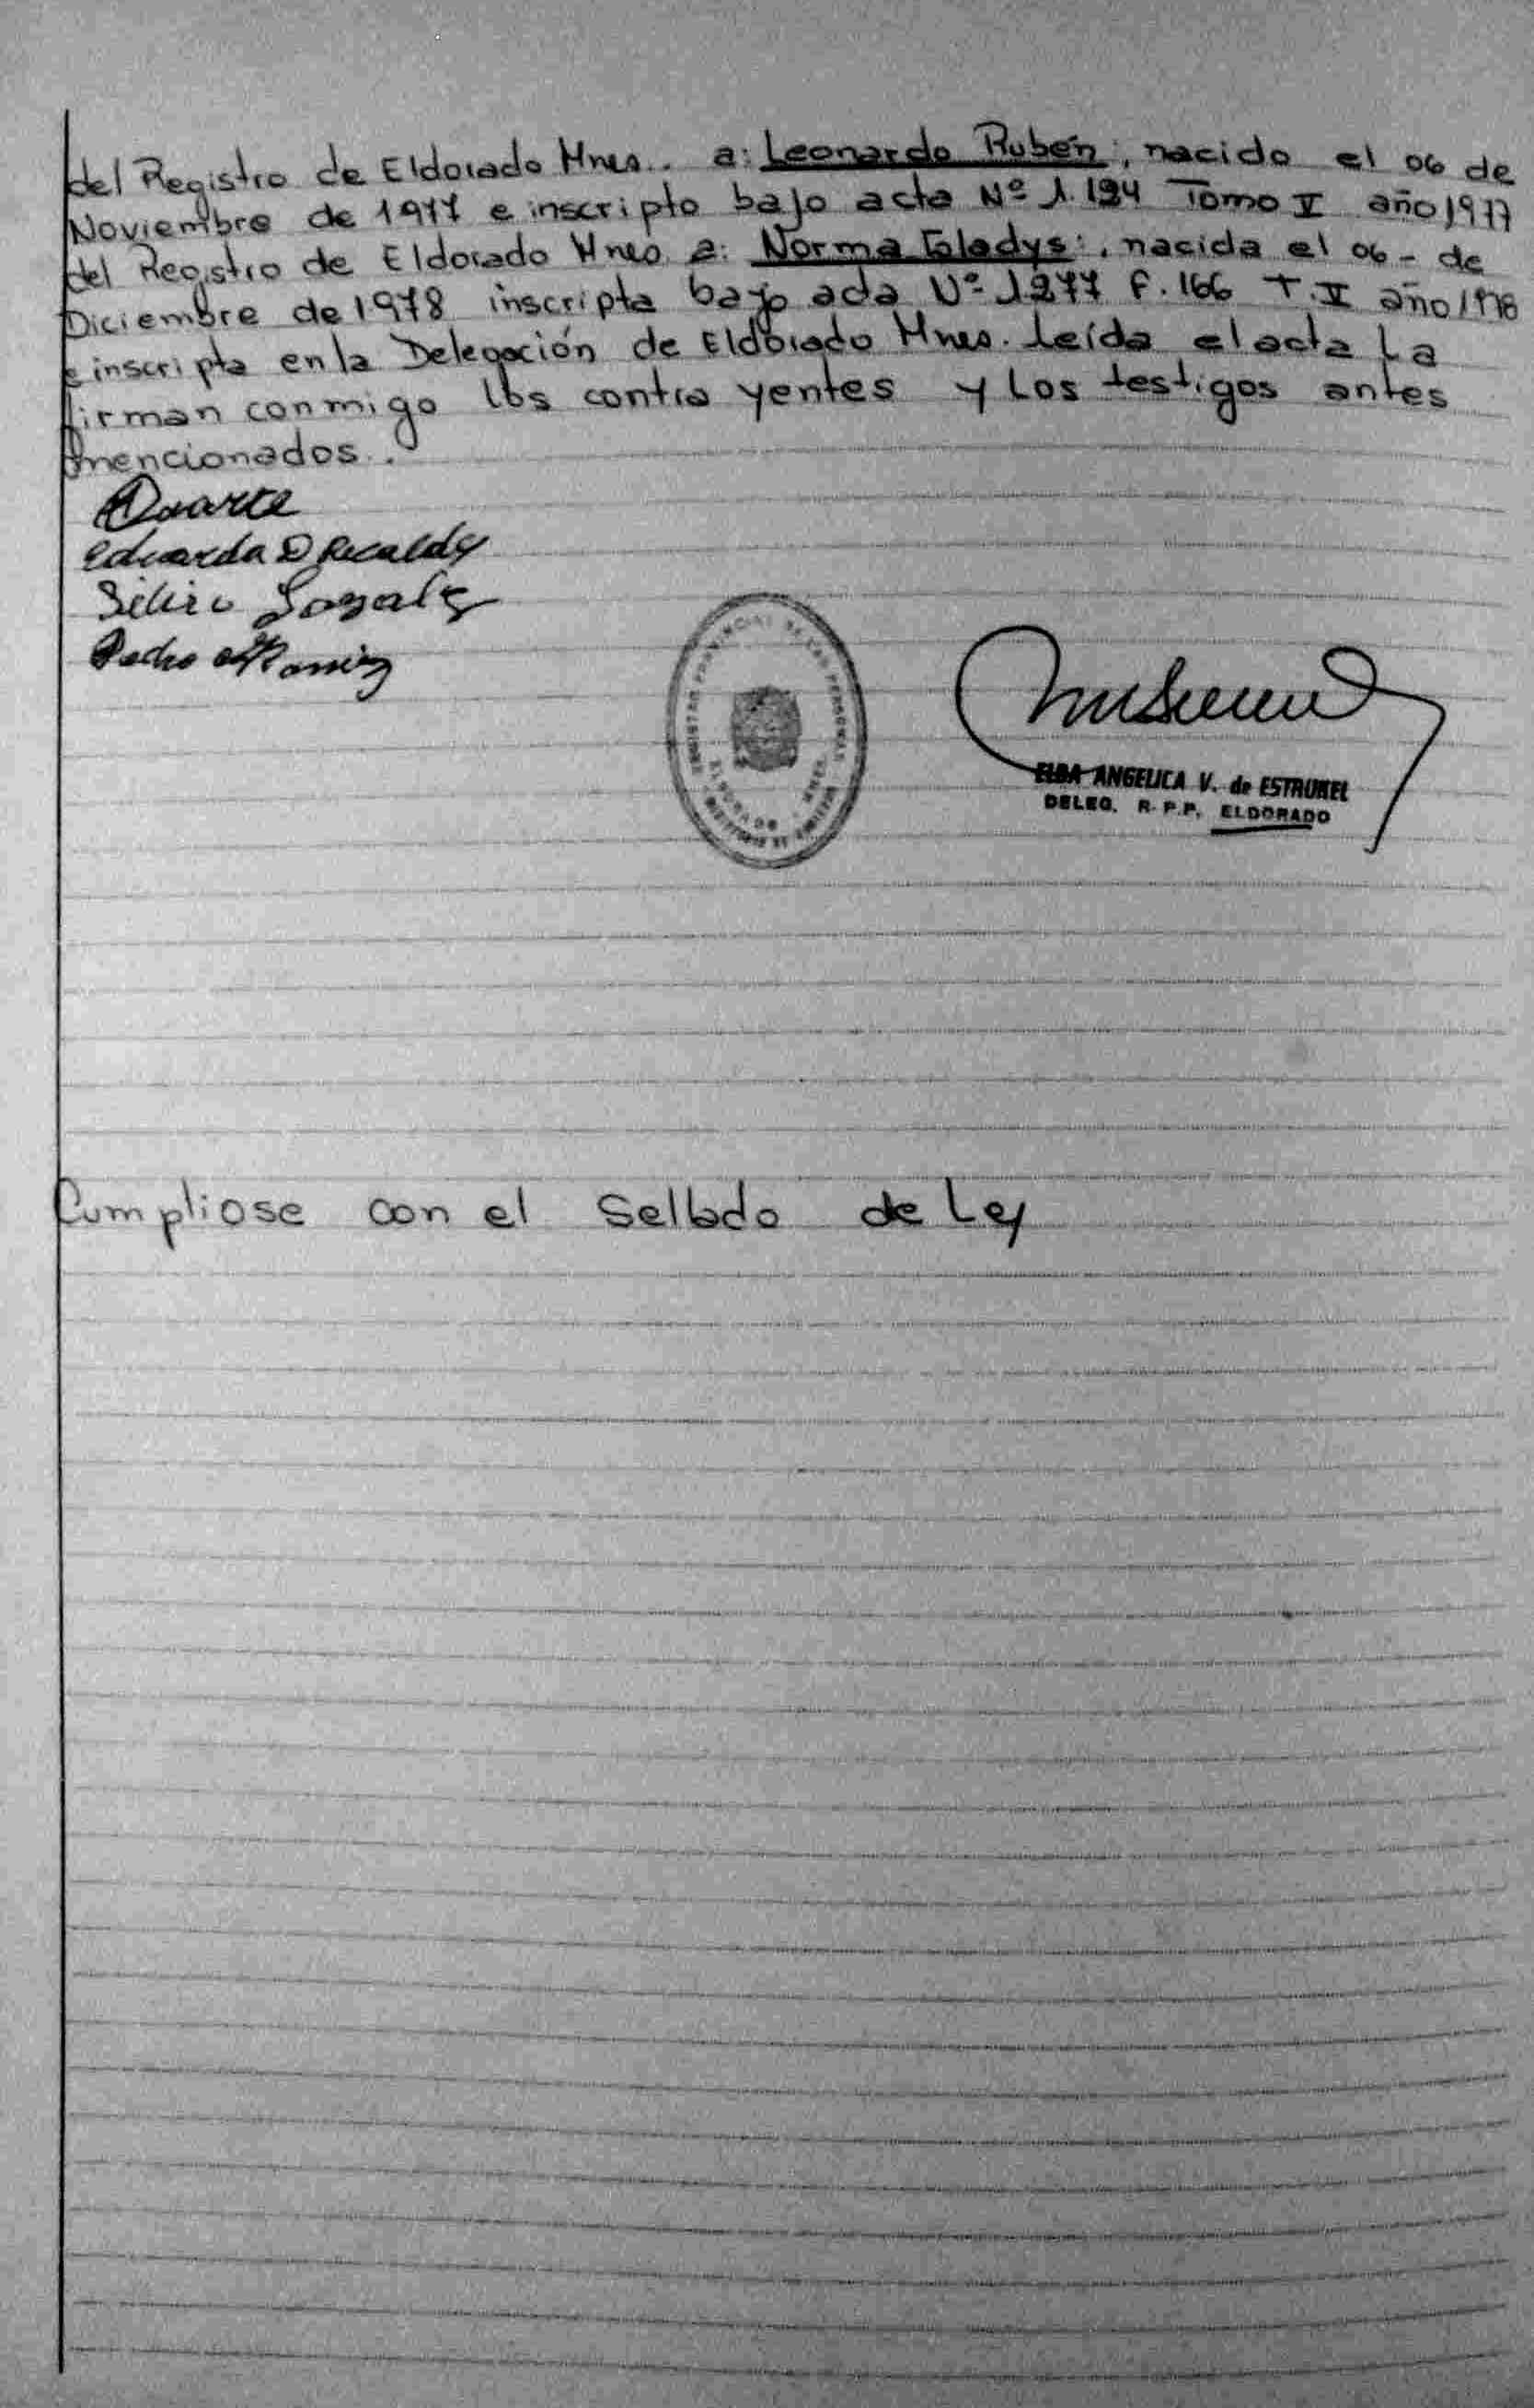 del Registro de Eldorado Mnes.. a: Leonardo Rubén, nacido el 06 de
Noviembre de 1977 e inscripto bajo acta Nº 1.194 Tomo V año 1977
del Registro de Eldorado Mnes a: Norma Gladys:, nacida el 06 - de
Diciembre de 1978 inscripta bajo acta Nº 1277 F. 166 T. V año 1978
e inscripta en la Delegación de Eldorado Mnes. Leída el acta La
firman conmigo los contra yentes y Los testigos antes
mencionados.
Duarte
Eduarda D Recalde
ELBA ANGELICA V. de ESTRUKEL
DELEG. R. P.P. ELDORADO
Cumpliose con el Sellado de Ley